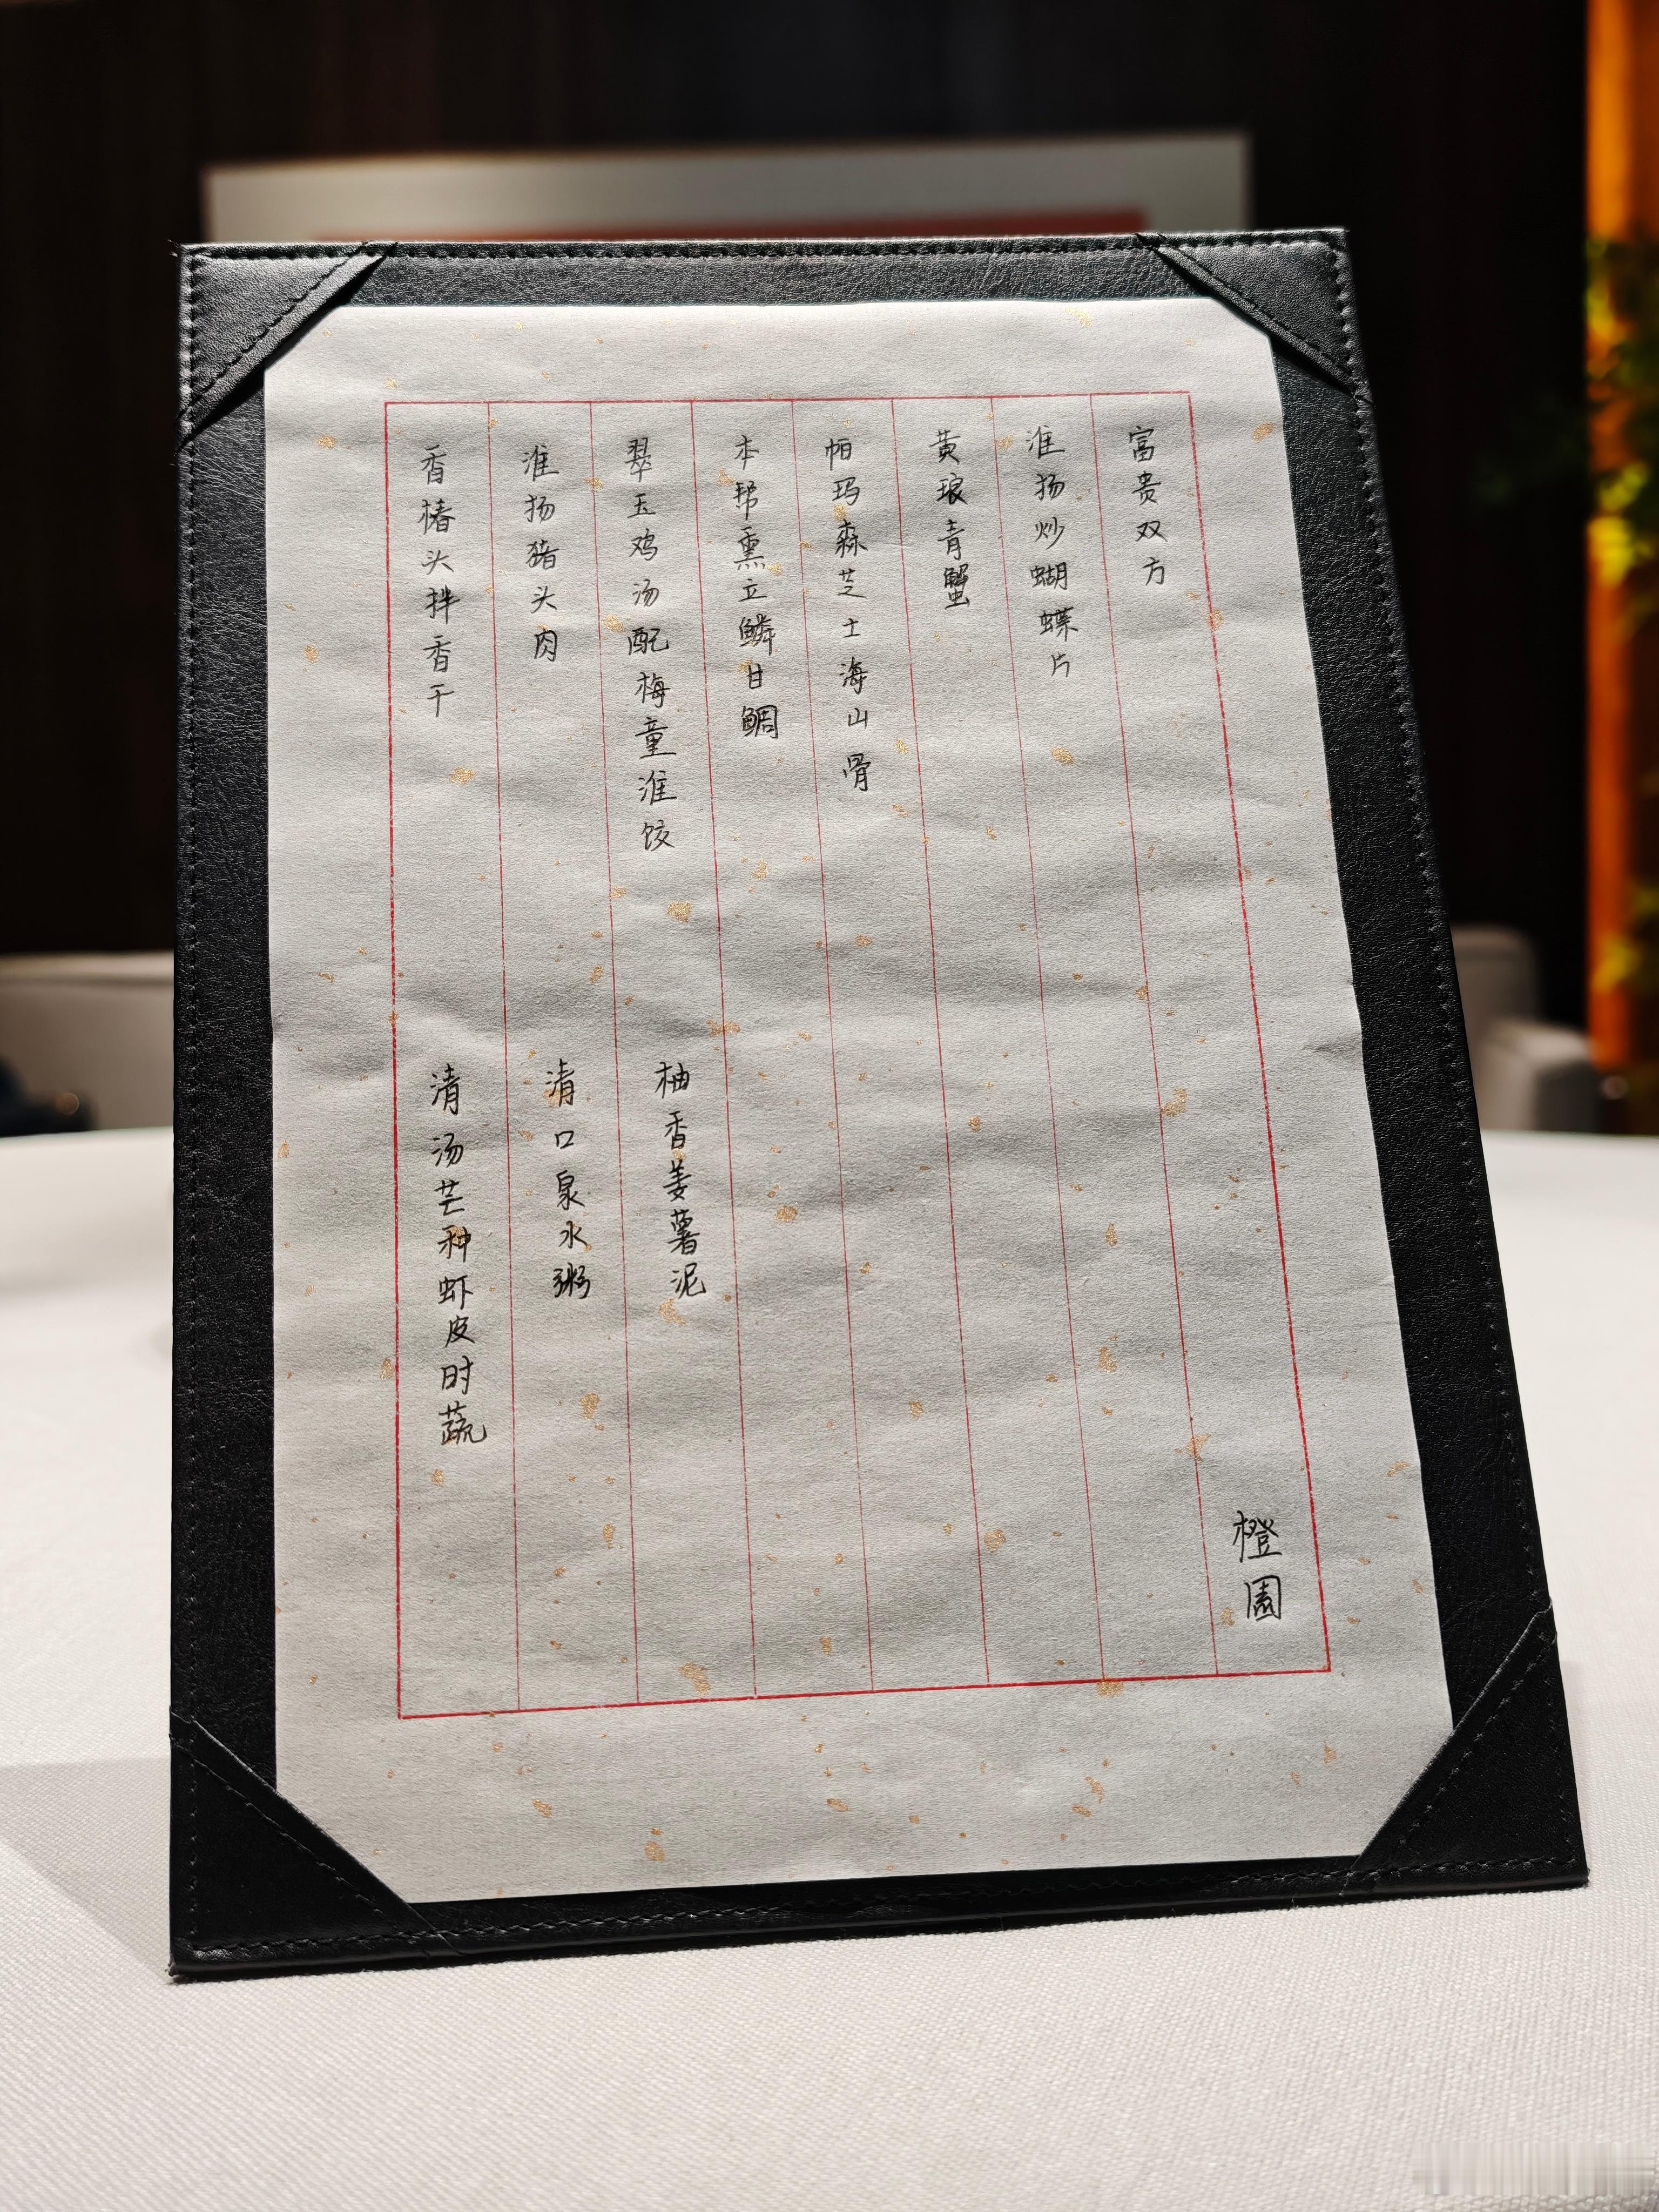 香椿头拌香干
淮扬猪头肉
翠玉鸡汤配梅童淮饺
本帮熏立鳞甘鲷
帕玛森芝士海山骨
黄琅青蟹
淮扬炒蝴蝶片
富贵双方
清汤芒种虾皮时蔬
清口泉水粥
柚香姜薯泥
橙園